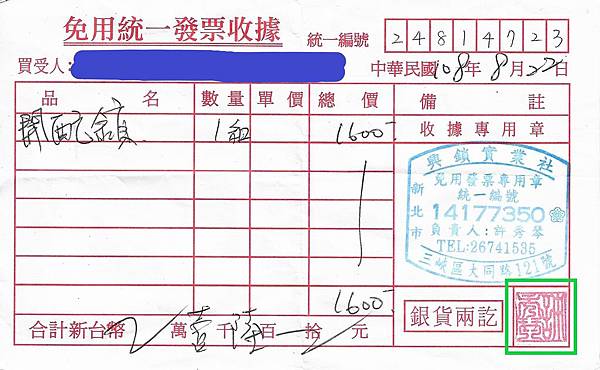 免用統一發票收據
統一編號 24814723
買受人:
中華民國108年8月22日
品名 數量 單價 總價 備註
開配鎖 1組 1600
收據專用章
興鎖實業社
免用發票專用章
統一編號
新北市
14177350
負責人:許秀琴
TEL:26741535
三峽區大同路121號
1600
合計新台幣 萬壹千陸百拾元
銀貨兩訖